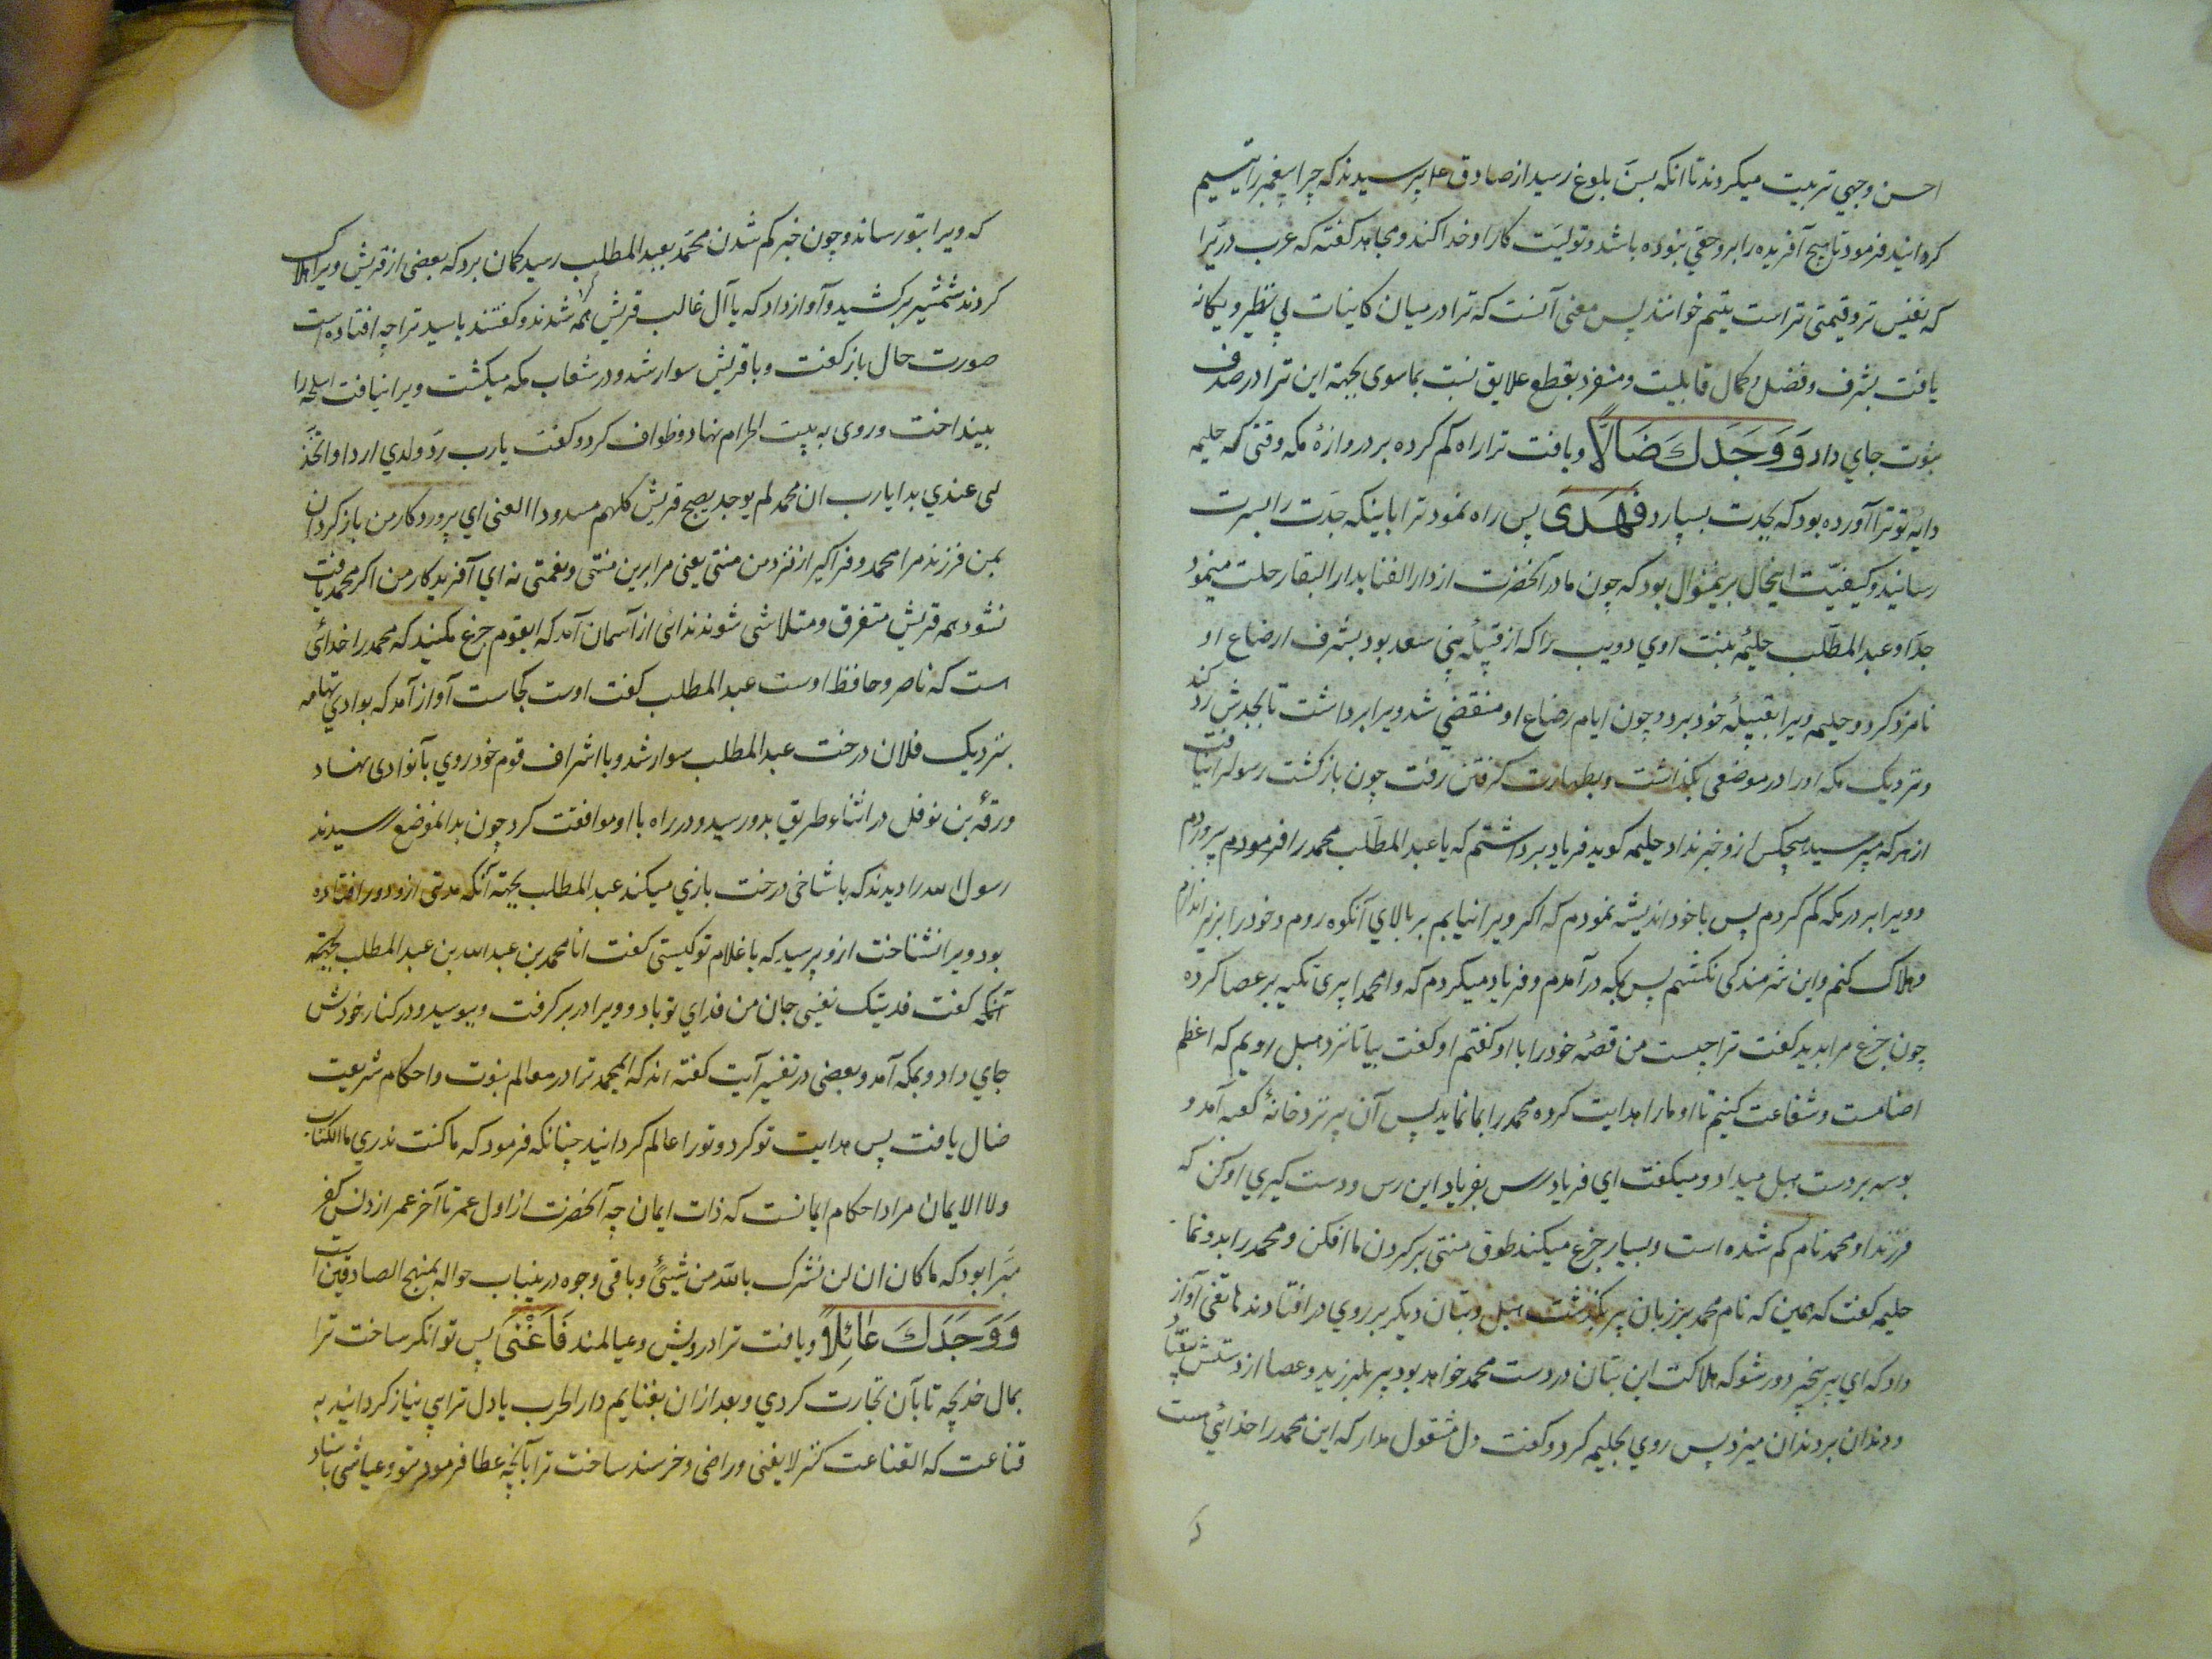 احسن وجهي تربيت ميكردند تا انكه بسن بلوغ رسيد از صادق ع پرسيدند كه چرا پيغمبر را يتيم
كردانيد فرمود تا هيچ آفريده را برو حقي نبوده باشد و توليت كار او خدا كند و مجاهد كفته كه عرب در ّي را
كه نفيس تر و قيمتى تر است يتيم خوانند پس معنى آنست كه ترا در ميان كاينات بي نظير و يكانه
يافت بشرف و فضل و كمال قابليت و منفرد بقطع علايق نسبت بما سوى بجهة اين ترا در صدف
نبوت جاي داد وَوَجَدَكَ ضَالًّا و يافت ترا راه كم كرده بر دروازهٔ مكه وقتى كه حليمه
دايه تو ترا آورده بود كه بجدت بسپارد فَهَدَى پس راه نمود ترا باينكه جدت را بسرت
رسانيد و كيفيّت اينحال برينمنوال بود كه چون مادر آنحضرت از دار الفنا بدار البقا رحلت مينمود
جد او عبد المطّلب حليمه بنت اوي دويب را كه از قبيلهٔ بني سعد بود بشرف ارضاع او
نامزد كرد و حليمه ويرا بقبيلهٔ خود برد و چون ايام رضاع او منقضي شد ويرا برداشت تا بجدش رد كند
و نزديك مكه اورا در موضعى بكذاشت و بطهارت كرفتن رفت چون بازكشت رسولرا نيافت
از هركه ميپرسيد هيچكس ازو خبر نداد حليمه كويد فرياد برداشتم كه يا عبد المطّلب محمد را فرمودم پروردم
و ويرا بر در مكه كم كردم پس با خود انديشه نمودم كه اكر ويرا نيابم بر بالاي آنكوه روم و خود را بزير اندازم
و هلاك كنم و اين شرمندكى نكشم پس بمكه در آمدم و فرياد ميكردم كه وا محمدا پيرى تكيه بر عصا كرده
چون جزع مرا بديد كفت ترا چيست من قصهٔ خود را با او كفتم او كفت بيا تا نزد هبل رويم كه اعظم
اصنامست و شفاعت كنيم تا او ما را هدايت كرده محمد را بما نمايد پس آن پير نزد خانهٔ كعبه آمد و
بوسه بر دست هبل ميداد و ميكفت اي فريادرس بفرياد اين رس و دست كيري او كن كه
فرزند او محمد نام كم شده است و بسيار جزع ميكند طوق منتى بر كردن ما افكن و محمد را بدو نما
حليمه كفت كه همين كه نام محمد بر زبان پير بكذشت هبل و بتان ديكر بر روي در افتادند هاتفى آواز
داد كه اي پير بيخبر دور شو كه هلاكت اين بتان در دست محمد خواهد بود پير بلرزيد و عصا از دستش بيفتاد
و دندان بر دندان ميزد پس روي بحليمه كرد و كفت دل مشغول مدار كه اين محمد را خدائي هست
كه
كه ويرا بتو رساند و چون خبر كم شدن محمد بعبد المطلب رسيد كمان برد كه بعضى از قريش ويرا هلاك
كردند شمشير بركشيد و آواز داد كه يا آل غالب قريش همه شدند و كفتند يا سيد ترا چه افتاده است
صورت حال باز كفت و با قريش سوار شد و در شعاب مكه ميكشت ويرا نيافت اسلحه را
بينداخت و روى به بيت الحرام نهاد و طواف كرد و كفت يارب ردّ ولدي ارددا و اتخذ
لى عندي يدا يارب ان محمد لم يوجد يصبح قريش كلهم مسدودا العنى اي پروردكار من باز كردان
بمن فرزند مرا محمد و فراكير از نزد من منتى يعنى مرا برين منتى و نعمتى نه اي آفريدكار من اكر محمد يافت
نشود همه قريش متفرق و متلاشى شوند ندائى از آسمان آمد كه ايقوم جزع مكنيد كه محمد را خدائى
است كه ناصر و حافظ اوست عبد المطلب كفت اوست كجاست آواز آمد كه بوادي تهامه
بنزديك فلان درخت عبد المطلب سوار شد و با اشراف قوم خود روي بآنوادى نهاد
ورقهٔ بن نوفل در اثناء طريق بدو رسيد و در راه با او موافقت كرد چون بدانموضع رسيدند
رسول الله را ديدند كه با شاخى درخت بازي ميكند عبد المطلب بجهة آنكه مدتى ازو دور افتاده
بود ويرا نشناخت ازو پرسيد كه يا غلام تو كيستى كفت انا محمد بن عبد الله بن عبد المطلب بجهة
آنكه كفت فديتك نفيى جان من فداي تو باد و ويرا در بر كرفت و ببوسيد و در كنار خودش
جاي داد و بمكه آمد و بعضى در تفسير آيت كفته اند كه ايمحمد ترا در معالم نبوت و احكام شريعت
ضال يافت پس هدايت تو كرد و تورا عالم كردانيد چنانكه فرمود كه ما كنت تدري ما الكتاب
ولا الايمان مراد احكام ايمانست كه ذات ايمان چه آنحضرت از اول عمر تا آخر عمر از دنس كفر
مبّرا بود كه ما كان ان لن نشرك بالله من شيئٍ و باقى وجوه درينباب حواله بمنهج الصادقين است
وَوَجَدَكَ عَائِلًا و يافت ترا درويش و عيالمند فَاَغْنَى پس توانكر ساخت ترا
بمال خديجه تا بآن تجارت كردي و بعد از ان بغنايم دار الحرب يا دل ترا بي نياز كردانيد به
قناعت كه القناعت كنز لا يفنى و راضى و خرسند ساخت ترا بآنچه عطا فرمود بتو و عياشى باسناد